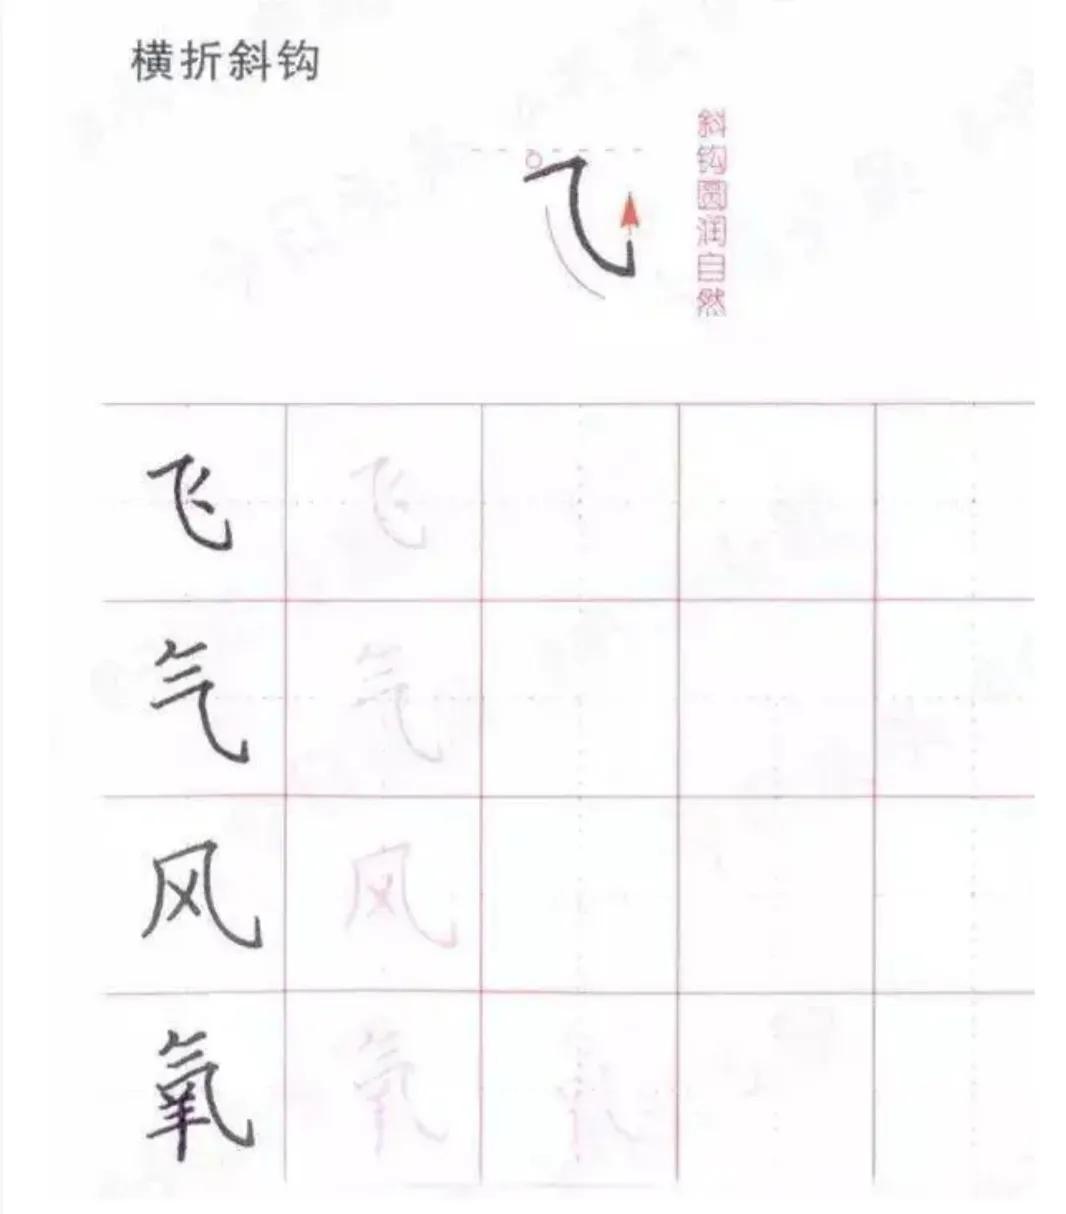 横折斜钩
斜钩圆润自然
飞 飞
气 气
风 风
氧 氧